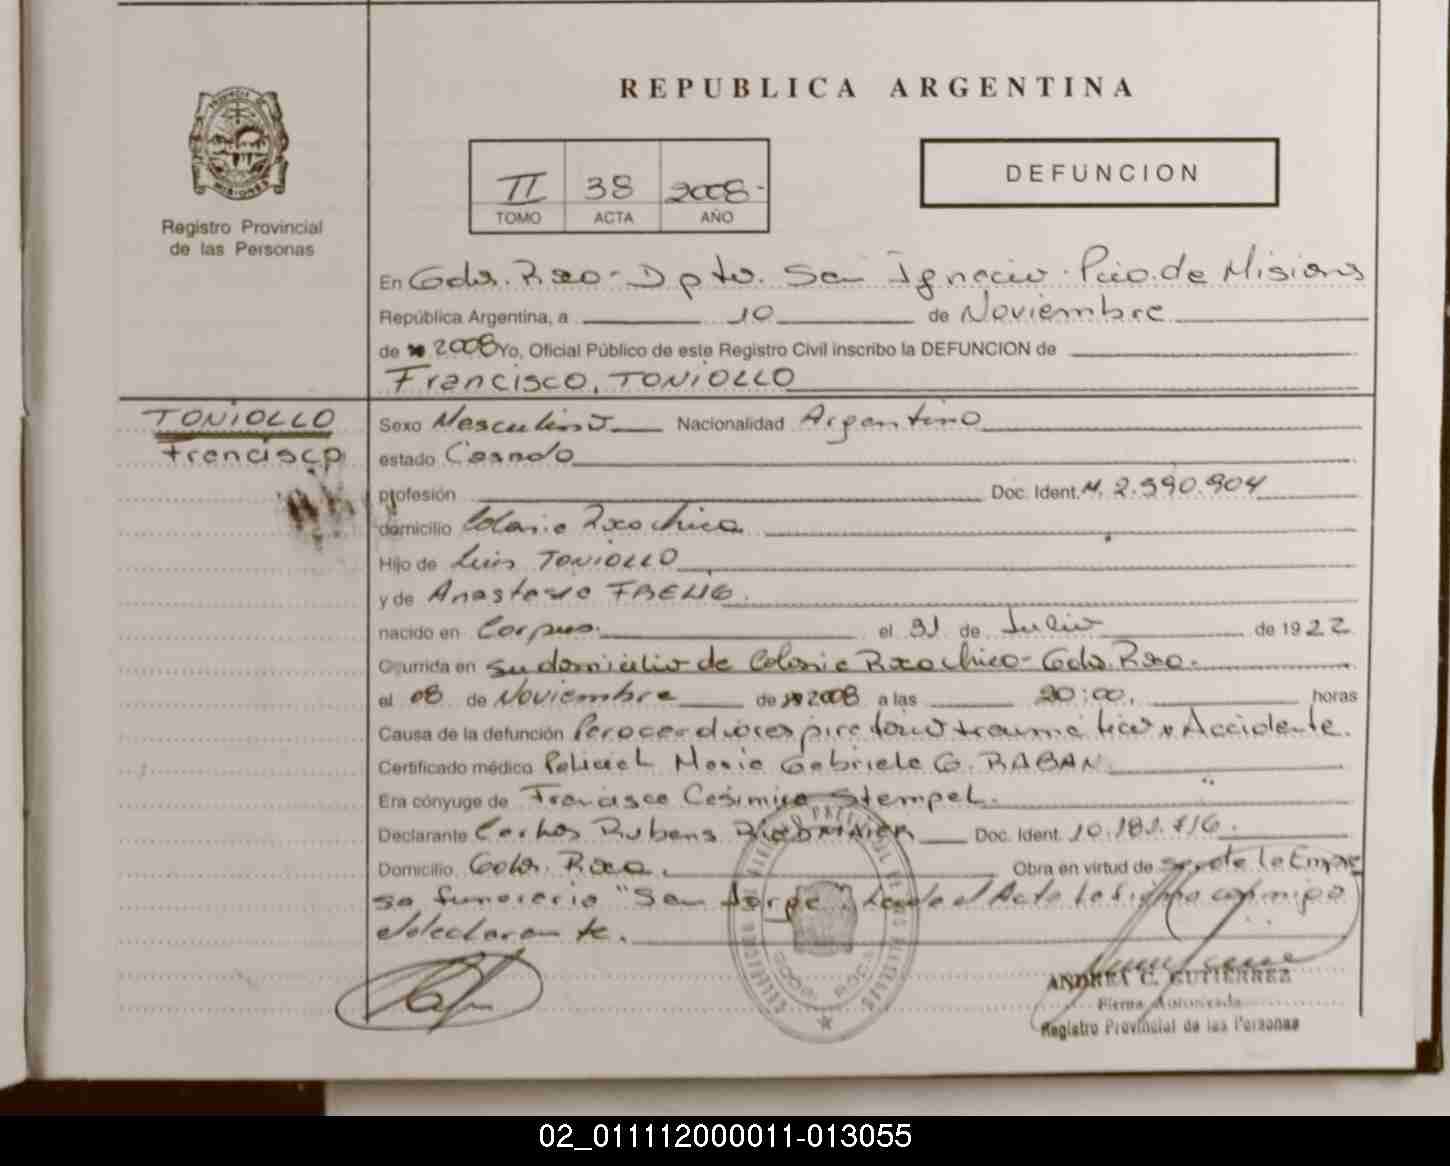 REPUBLICA ARGENTINA
PROVINCIA DE MISIONES
Registro Provincial
de las Personas
II 38 2008-
TOMO ACTA AÑO
DEFUNCION
En Gdor. Roca - Dpto. San Ignacio. Pcio. de Misiones
República Argentina, a 10 de Noviembre
de 2008 Yo, Oficial Público de este Registro Civil inscribo la DEFUNCION de
Francisco, TONIOLLO
TONIOLLO
Francisco
Sexo Masculino Nacionalidad Argentino
estado Casado
profesión Doc. Ident. M. 2.990.904
domicilio Colonia Roca Chica
Hijo de Luis TONIOLLO
y de
nacido en Corpus. el 31 de Julio de 1922
Ocurrida en su domicilio de Colonia Roca Chica - Gdor. Roca.
el 08 de Noviembre de 2008 a las 20:00. horas
Causa de la defunción Parocardiorespiratorio traumático Accidente.
Certificado médico Policial María Gabriela G. RABAN
Era cónyuge de Francisca Casimira Stempel.
Declarante Carlos Rubens Doc. Ident. 10.181.716.
Domicilio Gdor. Roca. Obra en virtud de ser de la Empre
sa funeraria "San Jorge". Leída el Acta la firma conmigo
el declarante.
ANDREA C. GUTIERREZ
Firma Autorizada
Registro Provincial de las Personas
02_011112000011-013055